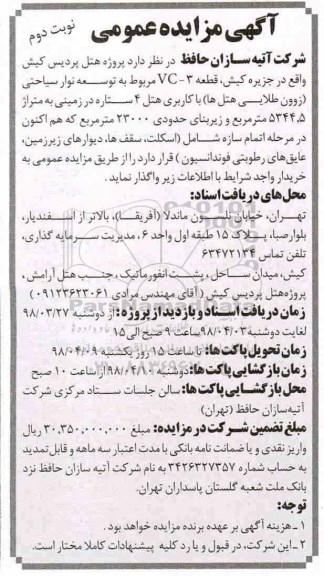 آگهی مزایده عمومی
نوبت دوم
شرکت آتیه سازان حافظ در نظر دارد پروژه هتل پردیس کیش
واقع در جزیره کیش، قطعه VC-۳ مربوط به توسعه نوار سیاحتی
(زوون طلایی هتل ها) با کاربری هتل ۴ ستاره در زمینی به متراژ
۵۳۴۴,۵ مترمربع و زیربنای حدودی ۲۳۰۰۰ مترمربع که هم اکنون
در مرحله اتمام سازه شامل (اسکلت، سقف ها، دیوارهای زیرزمین،
عایق‌های رطوبتی فونداسیون) قرار دارد را از طریق مزایده عمومی به
خریدار واجد شرایط با اطلاعات زیر واگذار نماید.
محل‌های دریافت اسناد:
تهران، خیابان نلسون ماندلا (آفریقا)، بالاتر از اسفندیار،
بلوار صبا، پلاک ۱۵ طبقه اول واحد ۶، مدیریت سرمایه گذاری،
تلفن تماس ۶۳۴۷۲۱۳۴
کیش، میدان ساحل، پشت انفورماتیک، جنب هتل آرامش،
پروژه هتل پردیس کیش (آقای مهندس مرادی ۰۹۱۲۳۶۲۳۰۶۱)
زمان دریافت اسناد و بازدید از پروژه: از دوشنبه ۹۸/۰۳/۲۷
لغایت دوشنبه ۹۸/۰۴/۰۳ ساعت ۹ صبح الی ۱۵
زمان تحویل پاکت‌ها: تا ساعت ۱۵ روز یکشنبه ۹۸/۰۴/۰۹
زمان بازگشایی پاکت‌ها: دوشنبه ۹۸/۰۴/۱۰ از ساعت ۱۰ صبح
محل بازگشایی پاکت‌ها: سالن جلسات ستاد مرکزی شرکت
آتیه‌سازان حافظ (تهران)
مبلغ تضمین شرکت در مزایده: مبلغ ۳۰,۳۵۰,۰۰۰,۰۰۰ ریال
واریز نقدی و یا ضمانت نامه بانکی با مدت اعتبار سه ماهه و قابل تمدید
به حساب شماره ۳۴۲۶۳۲۷۳۵۷ به نام شرکت آتیه سازان حافظ نزد
بانک ملت شعبه گلستان پاسداران تهران.
توجه:
۱- هزینه آگهی بر عهده برنده مزایده خواهد بود.
۲- این شرکت، در قبول و یا رد کلیه پیشنهادات کاملا مختار است.